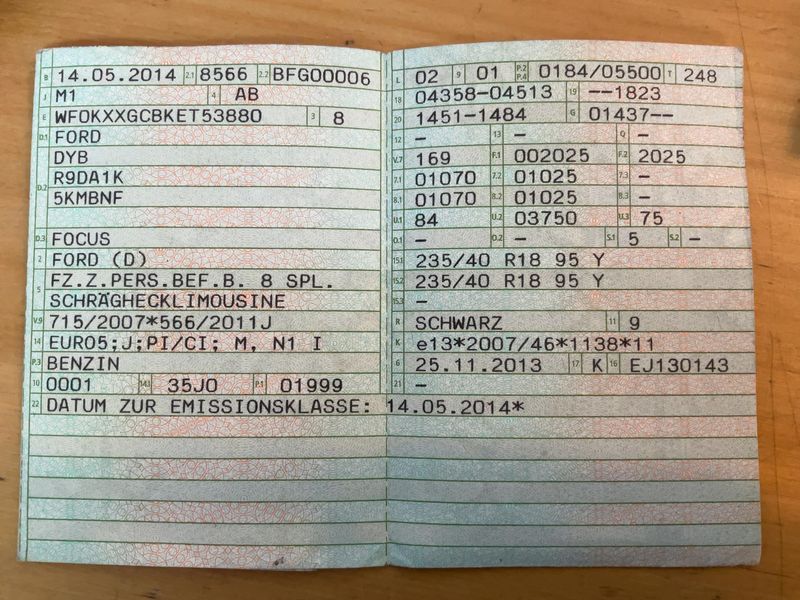 B 14.05.2014 2.1 8566 2.2 BFG00006
J M1 4 AB
E WF0KXXGCBKET53880 3 8
D.1 FORD
DYB
D.2 R9DA1K
5KMBNF
D.3 FOCUS
2 FORD (D)
5 FZ.Z.PERS.BEF.B. 8 SPL.
SCHRÄGHECKLIMOUSINE
V.9 715/2007*566/2011J
14 EURO5;J;PI/CI; M, N1 I
P.3 BENZIN
10 0001 14.1 35J0 P.1 01999
22 DATUM ZUR EMISSIONSKLASSE: 14.05.2014*
L 02 9 01 P.2 P.4 0184/05500 T 248
18 04358-04513 19 --1823
20 1451-1484 G 01437--
12 - 13 - Q -
V.7 169 F.1 002025 F.2 2025
7.1 01070 7.2 01025 7.3 -
8.1 01070 8.2 01025 8.3 -
U.1 84 U.2 03750 U.3 75
O.1 - O.2 - S.1 5 S.2 -
15.1 235/40 R18 95 Y
15.2 235/40 R18 95 Y
15.3 -
R SCHWARZ 11 9
K e13*2007/46*1138*11
6 25.11.2013 17 K 16 EJ130143
21 -